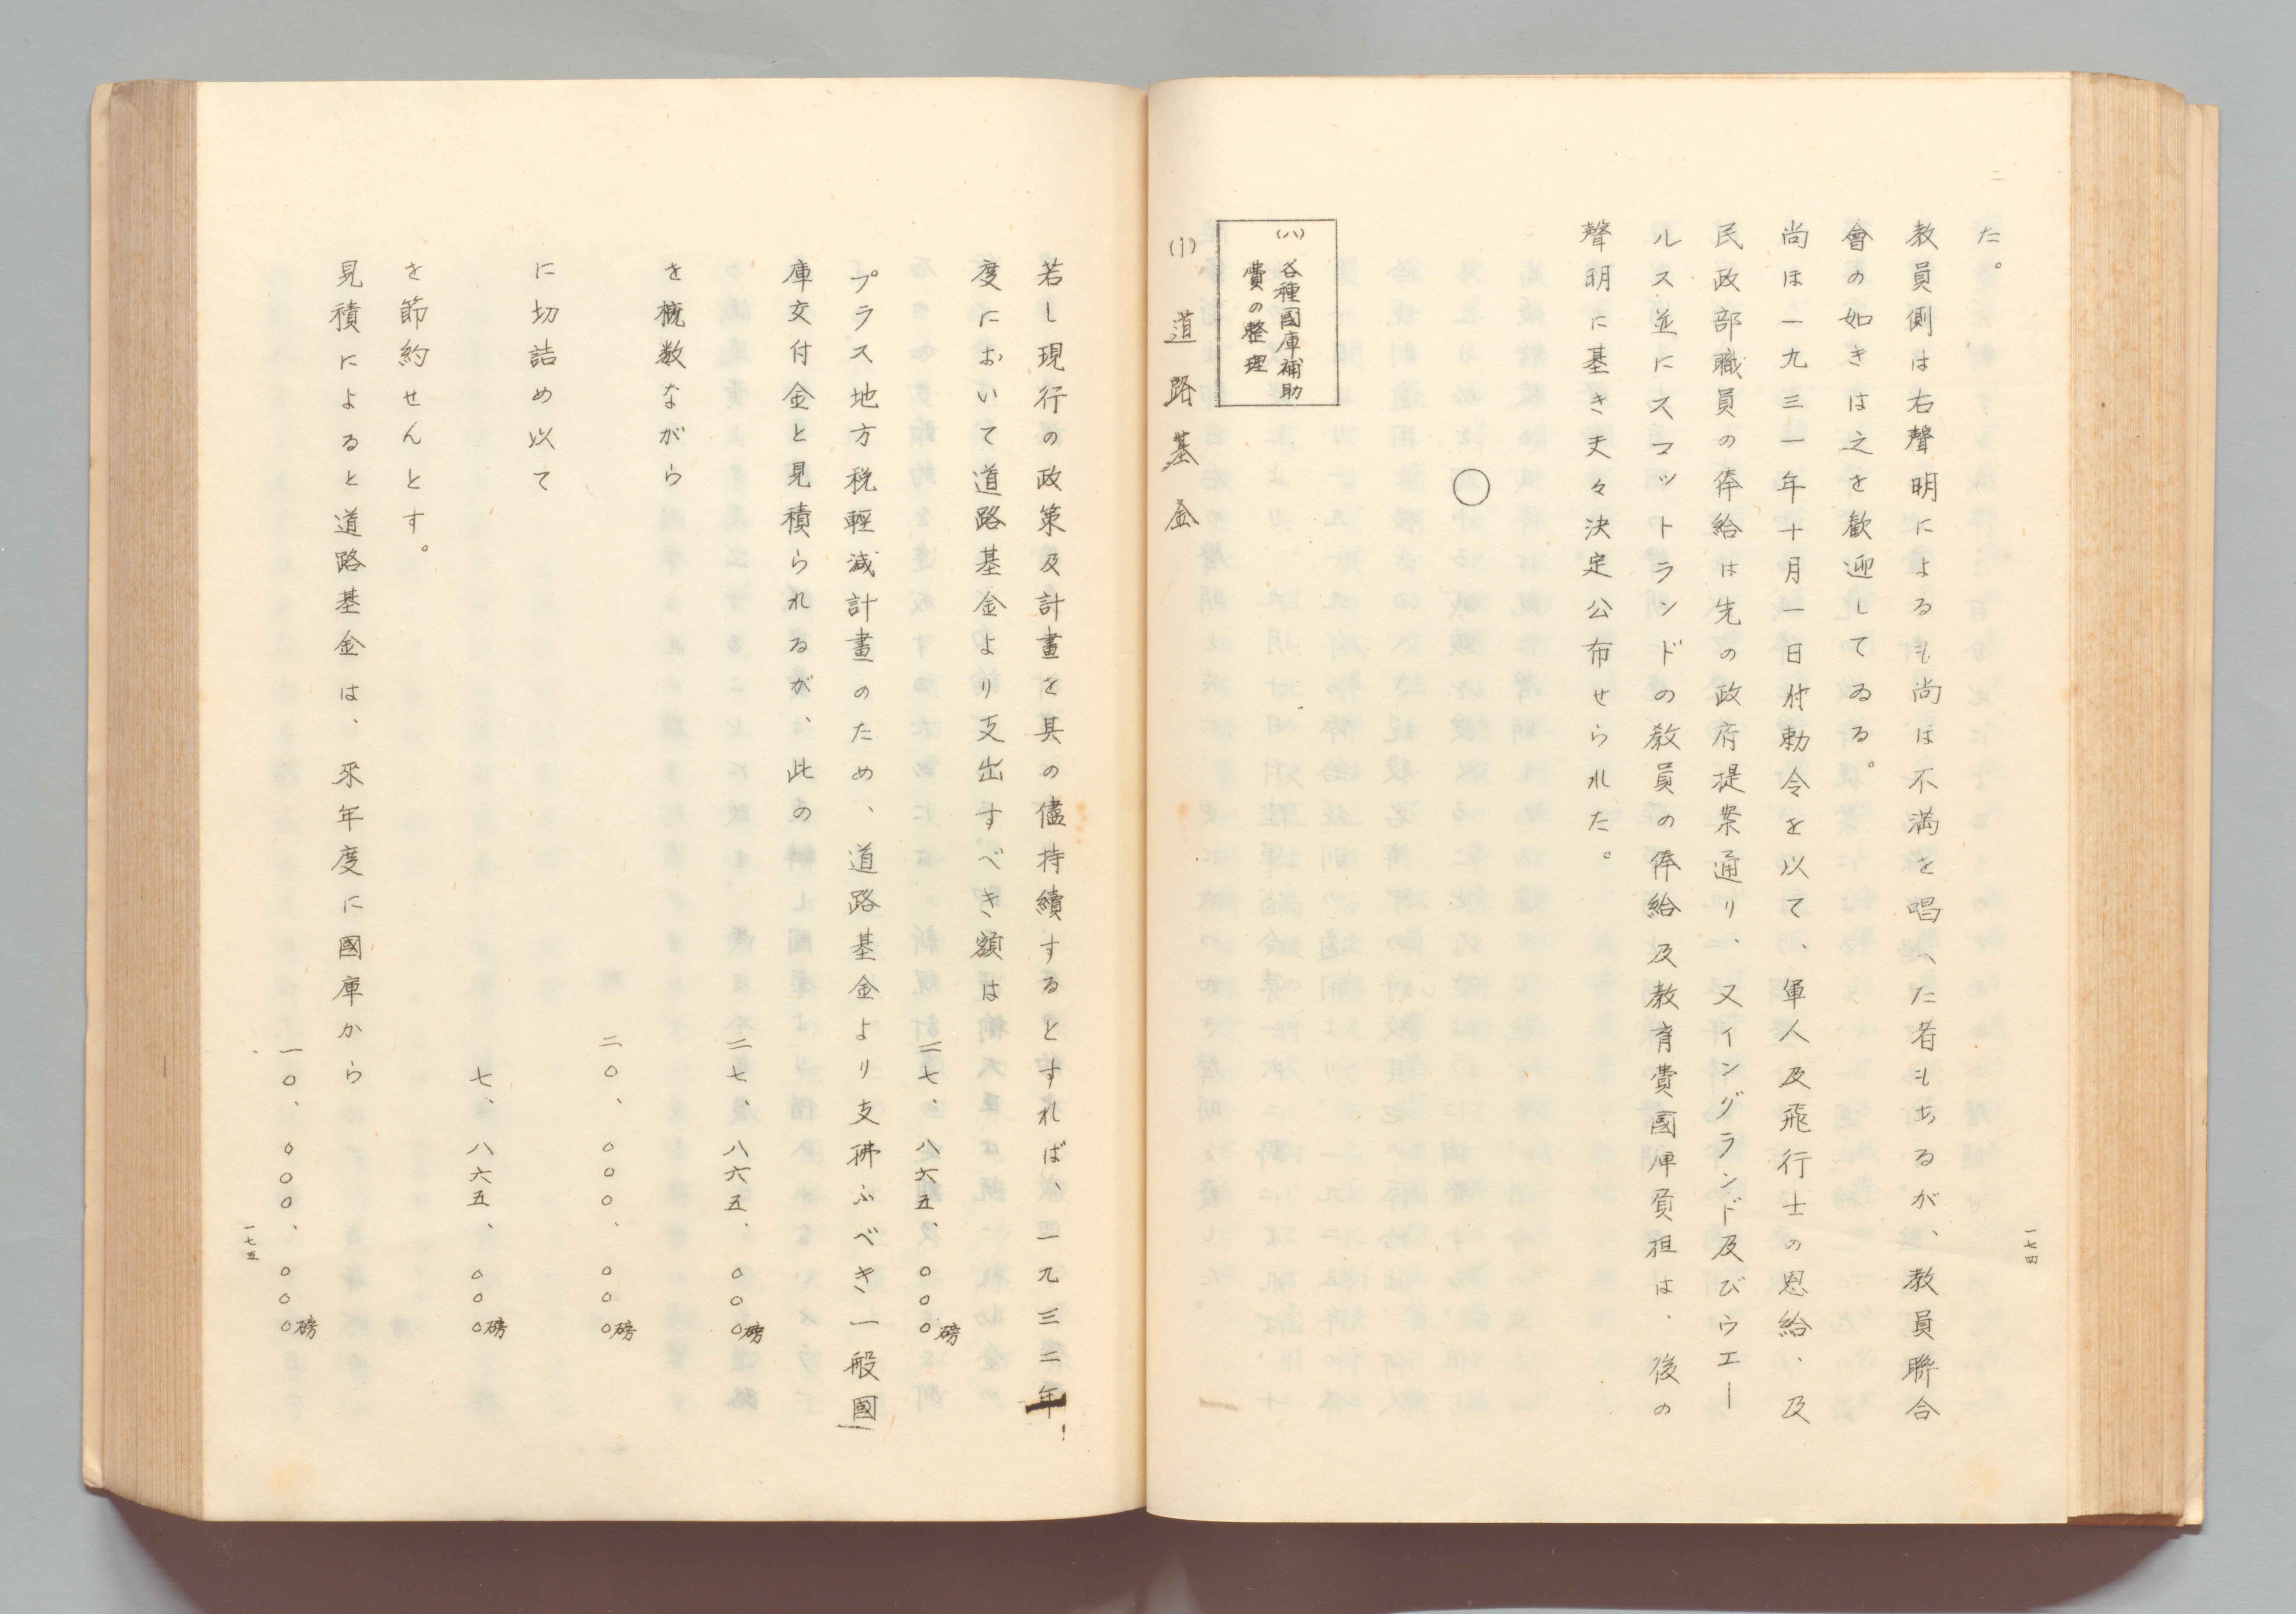 た。
教員側は右聲明によるも尚ほ不満を唱へた者もあるが、教員聯合
會の如きは之を歓迎してゐる。
尚ほ一九三一年十月一日附勅令を以て、軍人及飛行士の恩給、及
民政部職員の俸給は先の政府提案通り、又イングランド及びウエー
ルス並にスコットランドの教員の俸給及教育費國庫負担は、後の
聲明に基き夫々決定公布せられた。
○
(八) 各種國庫補助
費の整理
(1) 道路基金
一七四
若し現行の政策及計畫を其の儘持續するとすれば、一九三二年
度において道路基金より支出すべき額は
二七、八六五、〇〇〇磅
プラス地方税軽減計畫のため、道路基金より支拂ふべき一般國
庫交付金と見積られるが、此の
二七、八六五、〇〇〇磅
を概数ながら
二〇、〇〇〇、〇〇〇磅
に切詰め以て
七、八六五、〇〇〇磅
を節約せんとす。
見積によると道路基金は、来年度に國庫から
一〇、〇〇〇、〇〇〇磅
一七五